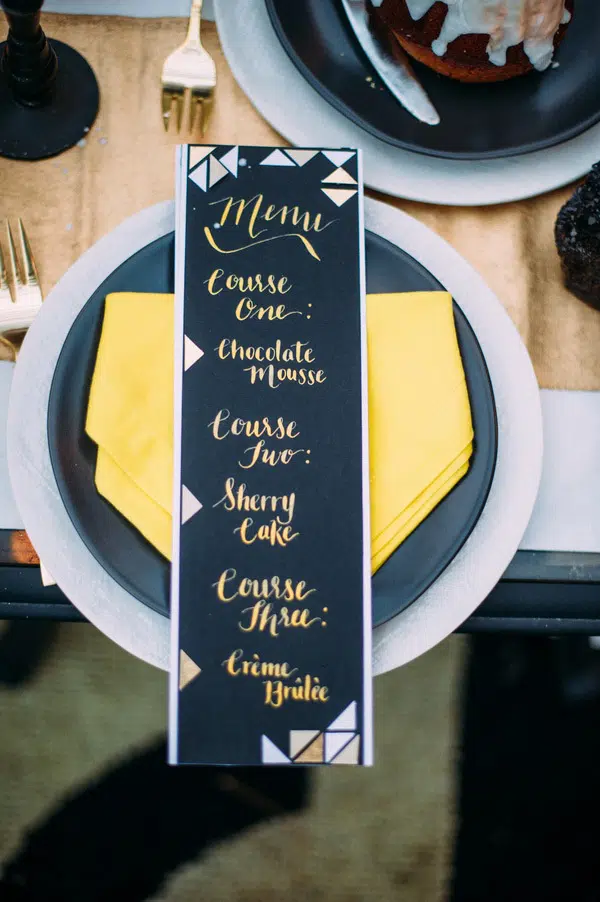 Menu
Course
One:
Chocolate
Mousse
Course
Two:
Sherry
Cake
Course
Three:
Crème
Brûlèe